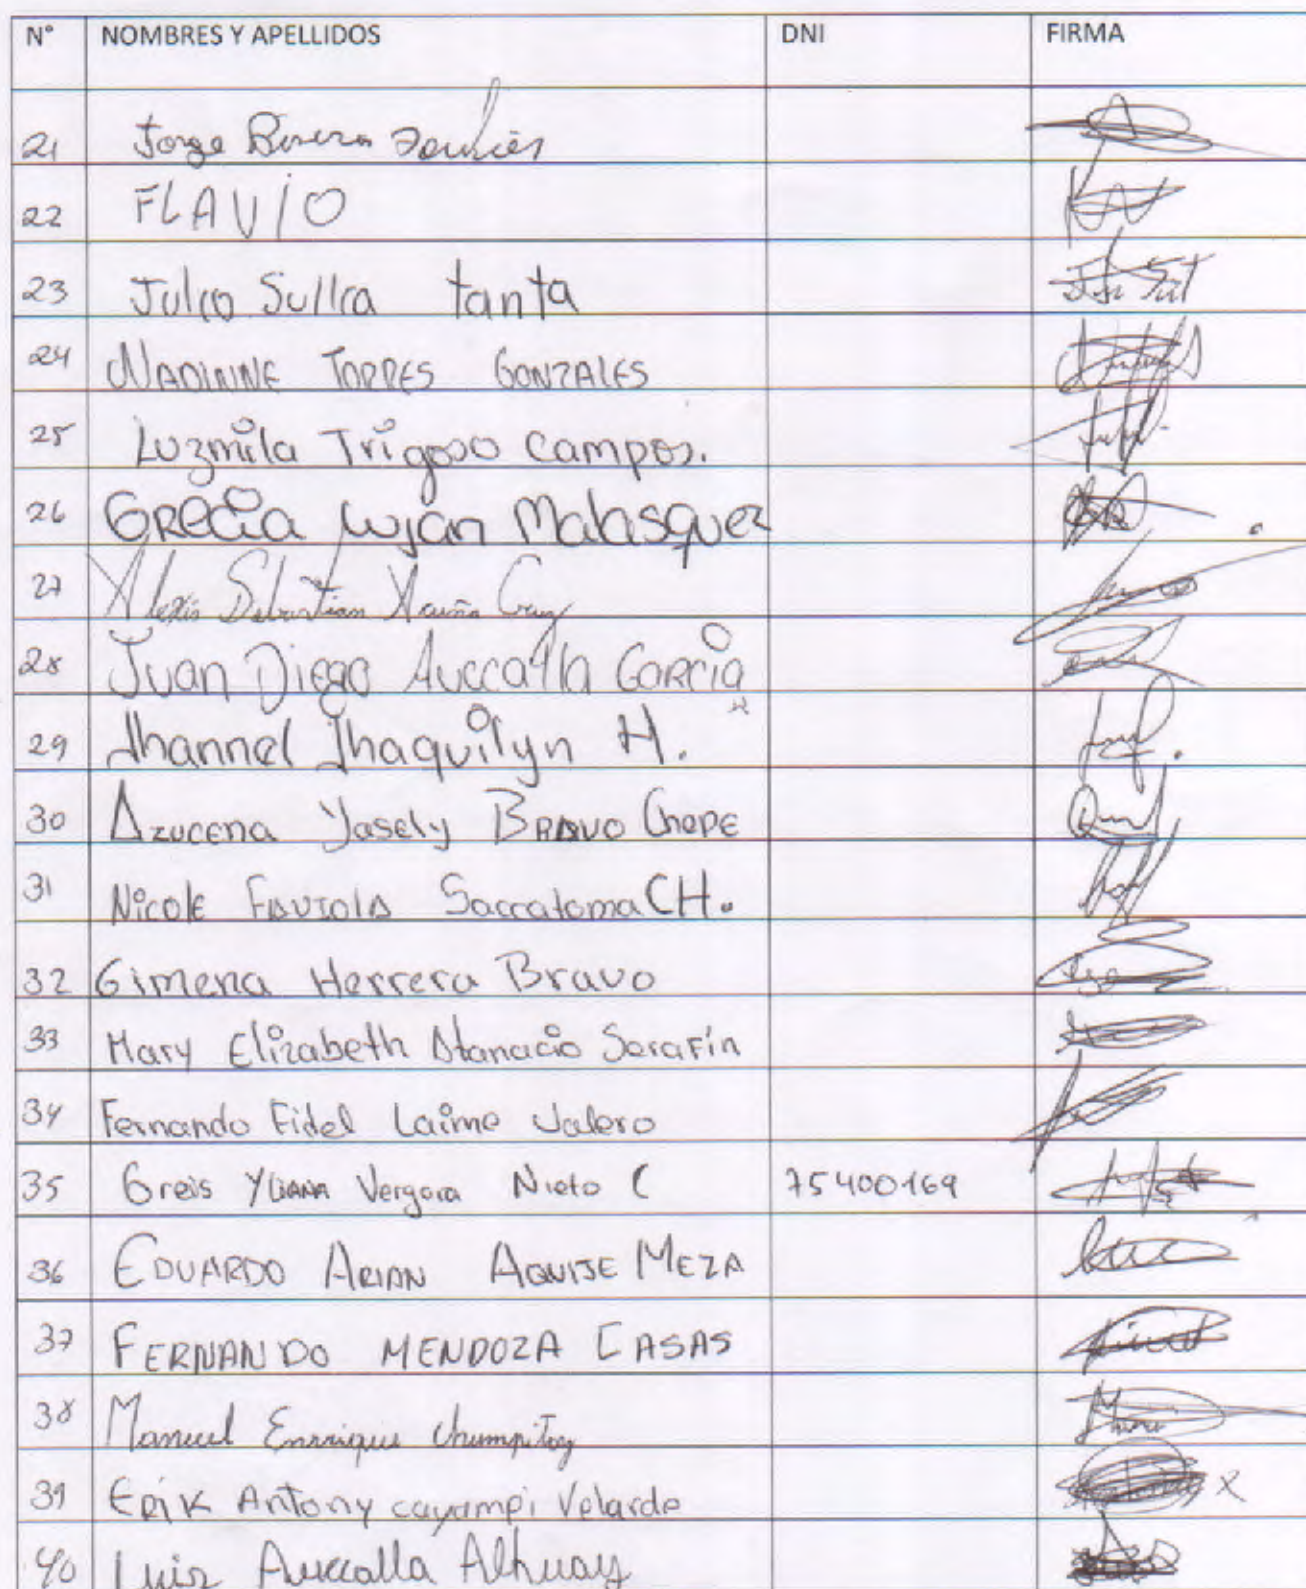 N° NOMBRES Y APELLIDOS DNI FIRMA
21 Jorge Rivera
22 FLAVIO
23 Julco Sullca tanta
24 NADINNE TORRES GONZALES
25 Luzmila Trigoso Campos.
26 GRECIA Luján Malasquez
27 Alexis Sebastian Acuña Cruz
28 Juan Diego Auccaylla García
29 Jhannel Jhaquilyn H.
30 Azucena Yasely BRAVO Chepe
31 Nicole FAVIOLA Saccatoma CH.
32 Gimena Herrera Bravo
33 Mary Elizabeth Atanacio Serafín
34 Fernando Fidel Laime Valero
35 Greis YLIANA Vergara Nieto C 75400169
36 EDUARDO ARIAN AQUIJE MEZA
37 FERNANDO MENDOZA CASAS
38 Manuel Enrrique Chumpitaz
39 ERIK Antony cayampi Velarde
40 Luis Auccalla Alhuay